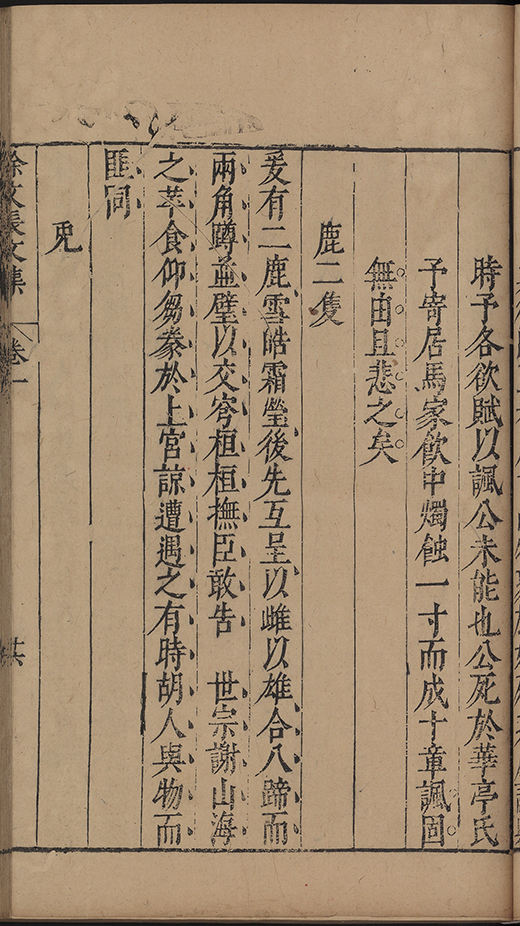 時予各欲賦以諷公未能也公死於華亭氏
予寄居馬家飲中燭蝕一寸而成十章諷固
無由且悲之矣
鹿二隻
爰有二鹿雪皓霜瑩後先互呈以雌以雄合八蹄而
兩角蹲並璧以交穹桓桓撫臣敢告　世宗謝山海
之苹食仰芻豢於上宮諒遭遇之有時胡人與物而
匪同
兕
徐文長文集　卷一